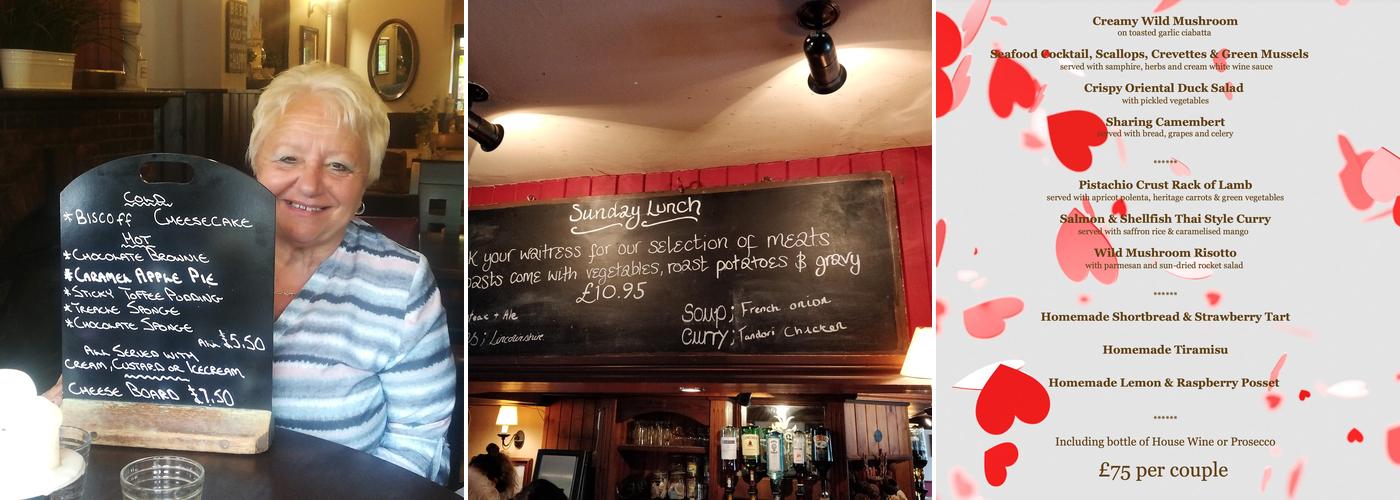 Cold
*Biscoff Cheesecake
Hot
*Chocolate Brownie
*Caramel Apple Pie
*Sticky Toffee Pudding
*Treacle Sponge
*Chocolate Sponge
All £5.50
All Served with
Cream, Custard or Icecream
Cheese Board £7.50
Sunday Lunch
k your waitress for our selection of meats
oasts come with vegetables, roast potatoes & gravy
£10.95
teak + Ale
Soup; French onion
s; Lincolnshire
Curry; Tandori Chicken
Creamy Wild Mushroom
on toasted garlic ciabatta
Seafood Cocktail, Scallops, Crevettes & Green Mussels
served with samphire, herbs and cream white wine sauce
Crispy Oriental Duck Salad
with pickled vegetables
Sharing Camembert
served with bread, grapes and celery
******
Pistachio Crust Rack of Lamb
served with apricot polenta, heritage carrots & green vegetables
Salmon & Shellfish Thai Style Curry
served with saffron rice & caramelised mango
Wild Mushroom Risotto
with parmesan and sun-dried rocket salad
******
Homemade Shortbread & Strawberry Tart
Homemade Tiramisu
Homemade Lemon & Raspberry Posset
******
Including bottle of House Wine or Prosecco
£75 per couple